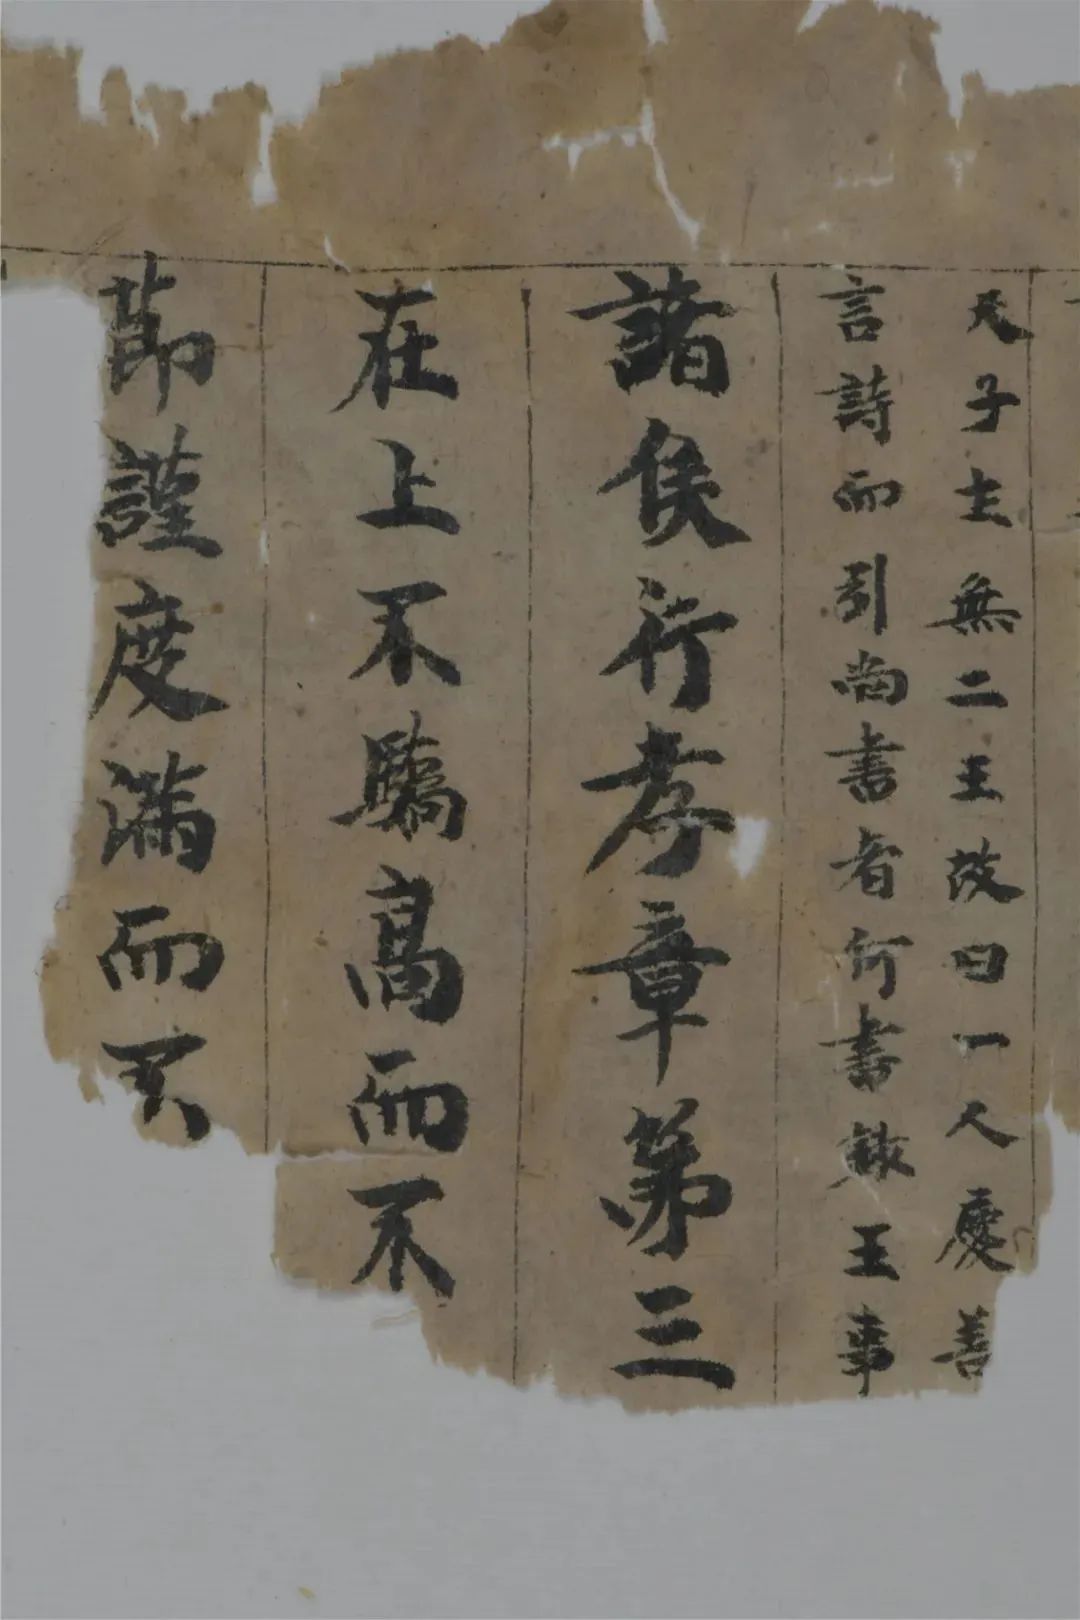 天子主無二王故曰一人慶善
言詩而引尚書者何書録王事
諸侯行孝章第三
在上不驕高而不
節謹度滿而不